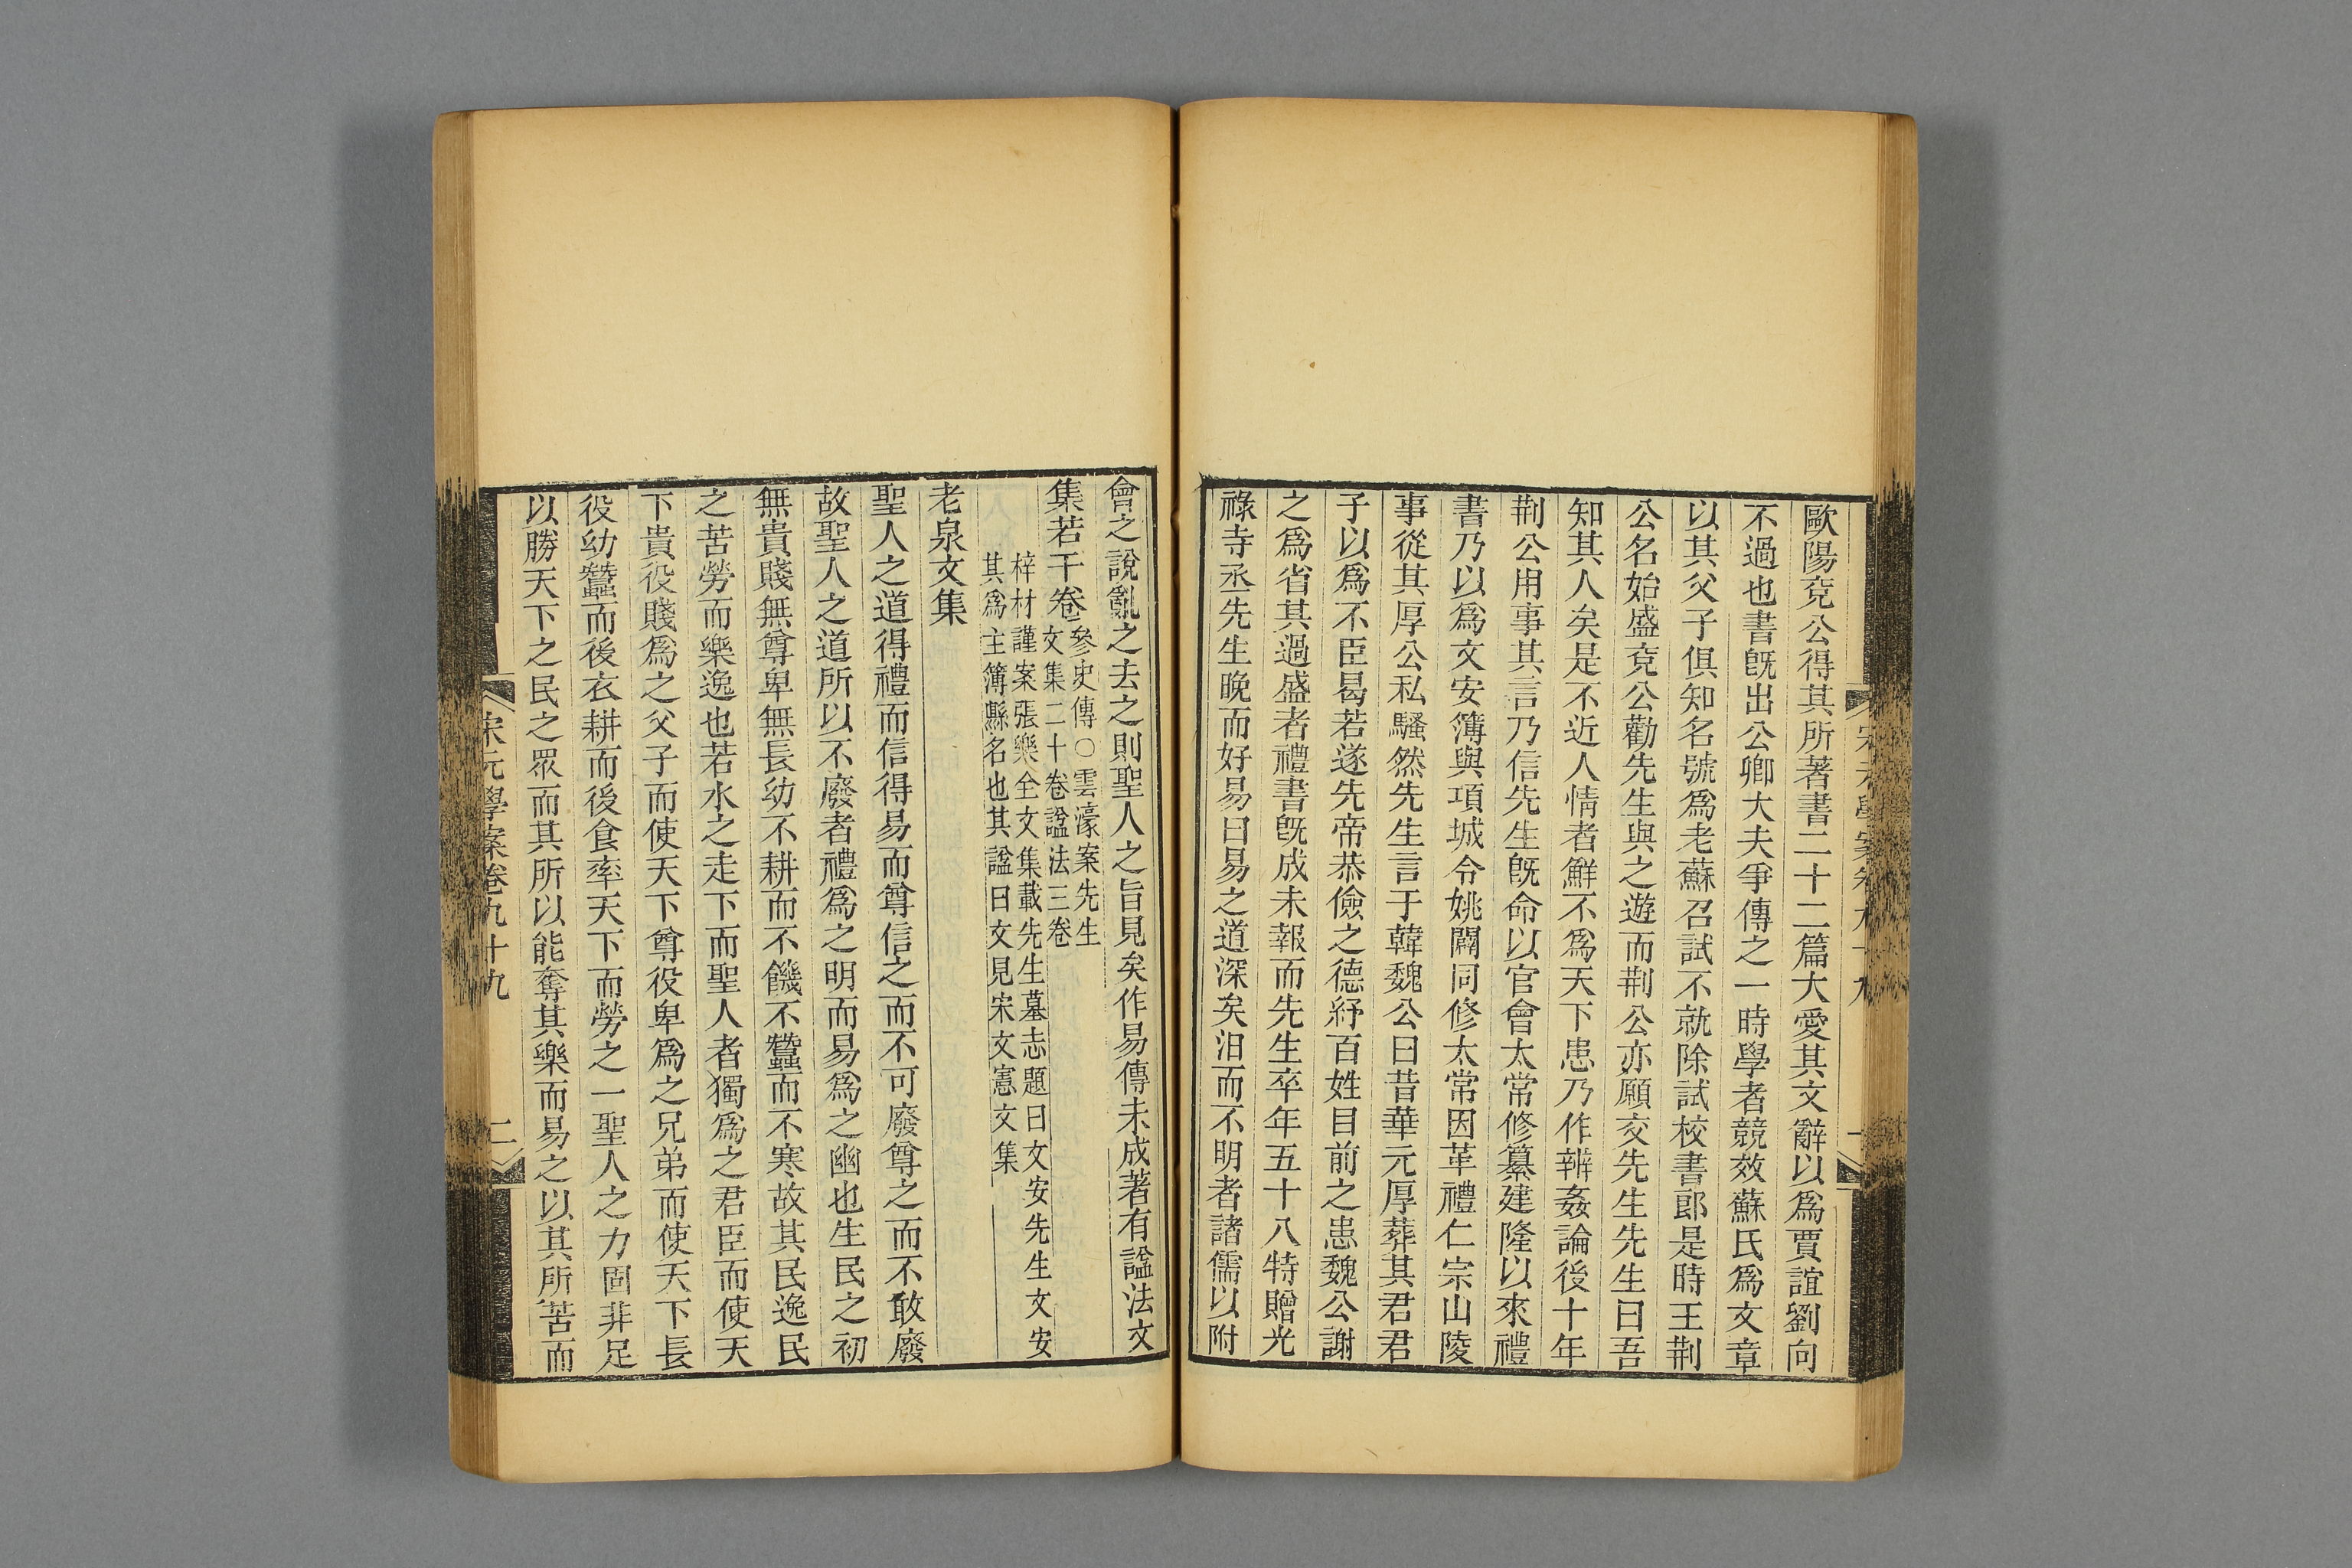 歐陽兗公得其所著書二十二篇大愛其文辭以爲賈誼劉向
不過也書旣出公卿大夫爭傳之一時學者競效蘇氏爲文章
以其父子俱知名號爲老蘇召試不就除試校書郎是時王荆
公名始盛兗公勸先生與之遊而荆公亦願交先生先生曰吾
知其人矣是不近人情者鮮不爲天下患乃作辨姦論後十年
荆公用事其言乃信先生旣命以官會太常修纂建隆以來禮
書乃以爲文安簿與項城令姚闢同修太常因革禮仁宗山陵
事從其厚公私騷然先生言于韓魏公曰昔華元厚葬其君君
子以爲不臣曷若遂先帝恭儉之德紓百姓目前之患魏公謝
之爲省其過盛者禮書旣成未報而先生卒年五十八特贈光
祿寺丞先生晚而好易曰易之道深矣汨而不明者諸儒以附
會之說亂之去之則聖人之旨見矣作易傳未成著有諡法文
集若干卷
參史傳○雲濠案先生
文集二十卷諡法三卷
梓材謹案張樂全文集載先生墓志題曰文安先生文安
其爲主簿縣名也其諡曰文見宋文憲文集
老泉文集
聖人之道得禮而信得易而尊信之而不可廢尊之而不敢廢
故聖人之道所以不廢者禮爲之明而易爲之幽也生民之初
無貴賤無尊卑無長幼不耕而不饑不蠶而不寒故其民逸民
之苦勞而樂逸也若水之走下而聖人者獨爲之君臣而使天
下貴役賤爲之父子而使天下尊役卑爲之兄弟而使天下長
役幼蠶而後衣耕而後食率天下而勞之一聖人之力固非足
以勝天下之民之眾而其所以能奪其樂而易之以其所苦而
宋元學案卷九十九
二